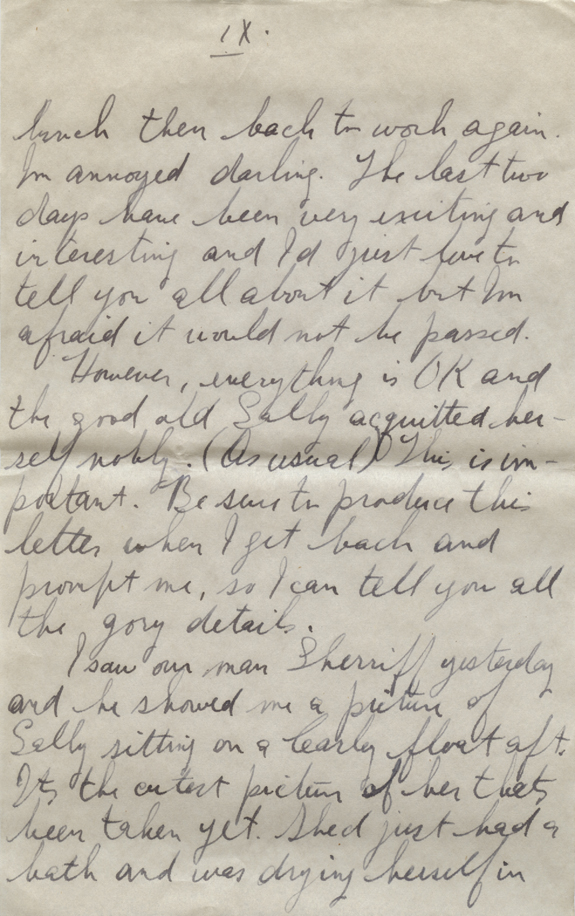 IX.
lunch then back to work again.
Im annoyed darling. The last two
days have been very exciting and
interesting and I'd just love to
tell you all about it but Im
afraid it would not be passed.
However, everything is OK and
the good old Sally acquitted her-
self nobly. (As usual) This is im-
portant. Be sure to produce this
letter when I get back and
prompt me, so I can tell you all
the gory details.
I saw our man Sherriff yesterday
and he showed me a picture of
Sally sitting on a Carley float aft.
Its the cutest picture of her thats
been taken yet. Shed just had a
bath and was drying herself in